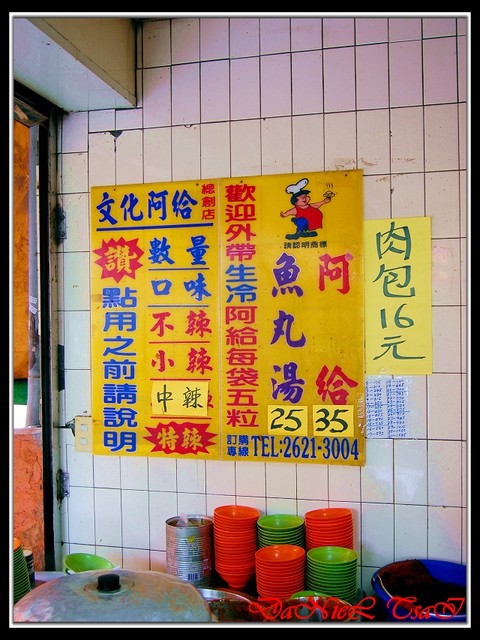 文化阿給
總創店
讚
點用之前請說明
數量
口味
不辣
小辣
中辣
特辣
歡迎外帶生冷阿給每袋五粒
請認明商標
魚丸湯
25
阿給
35
訂購專線
TEL:2621-3004
肉包16元
DaNieL TsaI